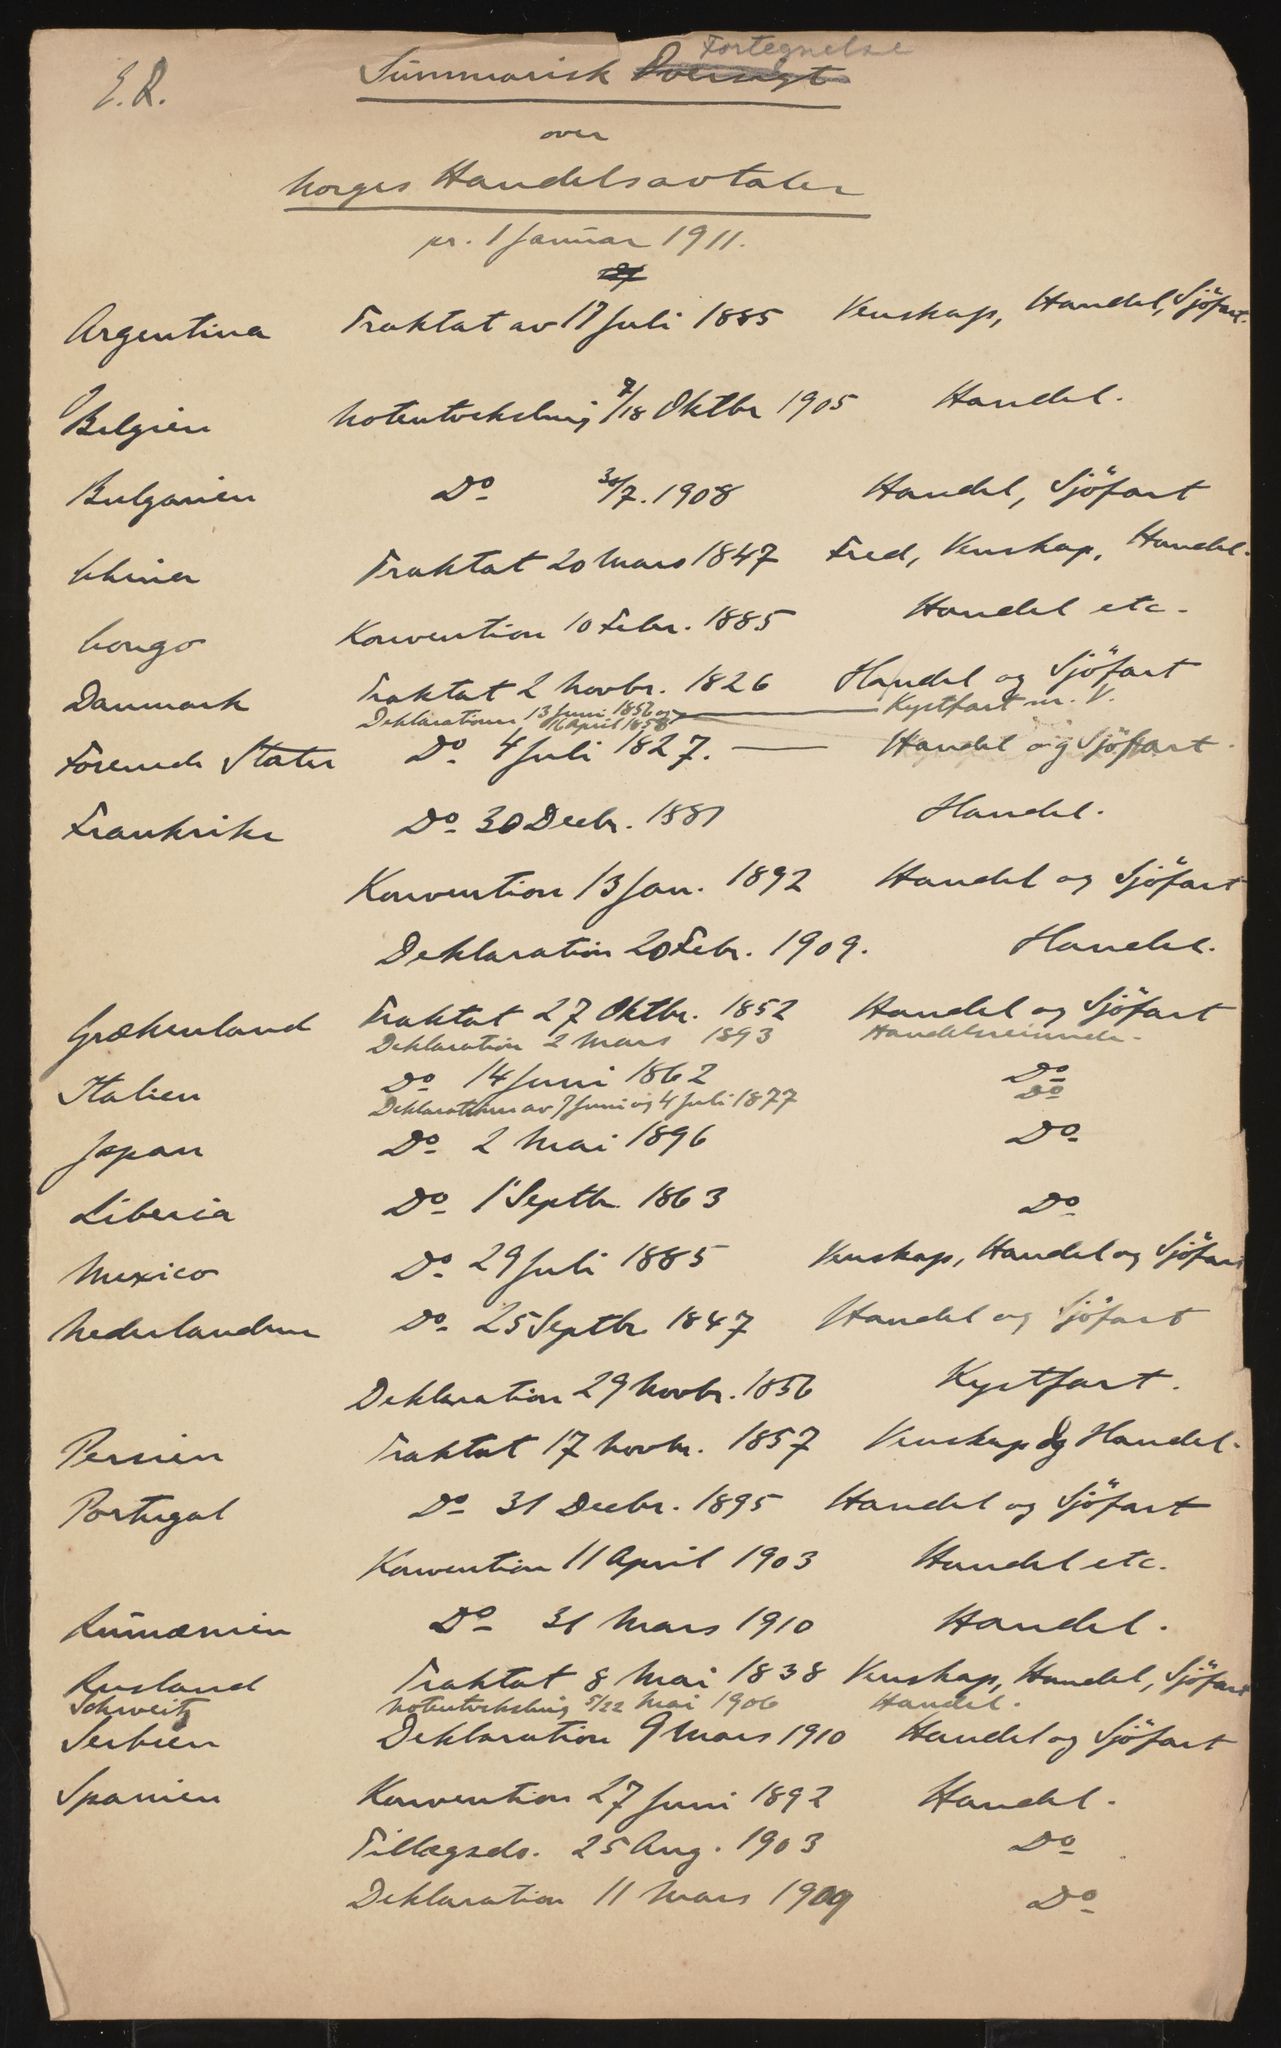 E.R.
Summarisk Oversigt Fortegnelse
over
Norges Handelsavtaler
pr. 1 Januar 1911.
Argentina Traktat av 17 Juli 1885 Venskap, Handel, Sjöfart.
Belgien Noteutveksling 7/18 Oktbr 1905 Handel.
Bulgarien Do 30/7. 1908 Handel, Sjöfart
China Traktat 20 Mars 1847 Fred, Venskap, Handel.
Congo Konvention 10 Febr. 1885 Handel etc.
Danmark Traktat 2 Novbr. 1826 Handel og Sjöfart
Deklarationer 13 Juni 1856 og 16 April 1858 Kystfart m. V.
Forenede Stater Do 4 Juli 1827. — Handel og Sjöfart.
Frankrike Do 30 Decbr. 1881 Handel.
Konvention 13 Jan. 1892 Handel og Sjöfart
Deklaration 20 Febr. 1909. Handel.
Grækenland Traktat 27 Oktbr. 1852 Handel og Sjöfart
Deklaration 2 Mars 1893 Handelsreisende.
Italien Do 14 Juni 1862 Do
Deklarationer av 7 Juni og 4 Juli 1877 Do
Japan Do 2 Mai 1896 Do
Liberia Do 1 Septbr 1863 Do
Mexico Do 29 Juli 1885 Venskap, Handel og Sjöfart
Nederlandene Do 25 Septbr 1847 Handel og Sjöfart
Deklaration 29 Novbr. 1856 Kystfart.
Persien Traktat 17 Novbr. 1857 Venskap og Handel.
Portugal Do 31 Decbr. 1895 Handel og Sjöfart
Konvention 11 April 1903 Handel etc.
Rumænien Do 31 Mars 1910 Handel.
Rusland Traktat 8 Mai 1838 Venskap, Handel, Sjöfart
Schweitz Noteutveksling 5/22 Mai 1906 Handel.
Serbien Deklaration 9 Mars 1910 Handel og Sjöfart
Spanien Konvention 27 Juni 1892 Handel.
Tillægsdo. 25 Aug. 1903 Do
Deklaration 11 Mars 1909 Do